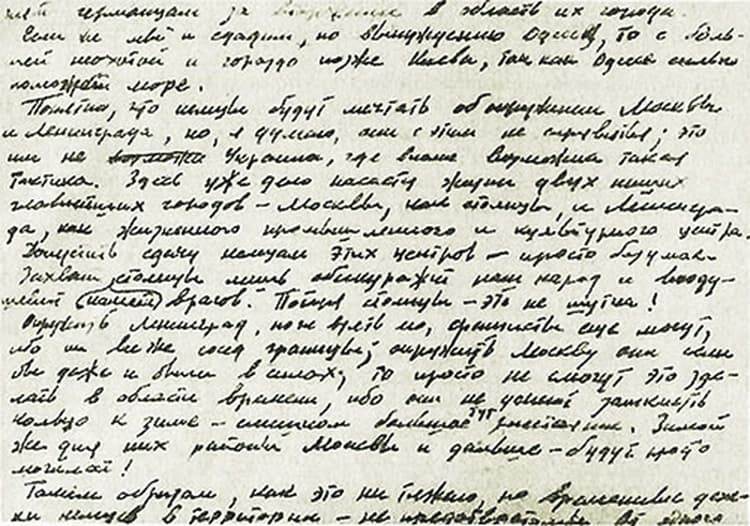 германцам за в область их города.
Если же мы и сдадим, по вынуждению Одессу, то с боль-
шей неохотой и гораздо позже Киева, так как Одессе сильно
поможет море.
Понятно, что немцы будут мечтать об окружении Москвы
и Ленинграда, но, я думаю, они с этим не справятся; это
им не Украина, где вполне возможна такая
тактика. Здесь уже дело касается жизни двух наших
главнейших городов – Москвы, как столицы, и Ленингра-
да, как жизненного промышленного и культурного центра.
Допустить сдачу немцам этих центров – просто безумие.
Захват столицы лишь обескуражит наш народ и вооду-
шевит врагов. Потеря столицы – это не шутка!
Окружить Ленинград, но не взять его, фашисты еще могут,
ибо он все же сосед границы; окружить Москву они если
бы даже и были в силах, то просто не смогут это сде-
лать в области времени, ибо они не успеют замкнуть
кольцо к зиме – слишком большое тут расстояние. Зимой
же для них районы Москвы и дальше – будут просто
могилой!
Таким образом, как это ни тяжело, но временные
немцев в территории – не от